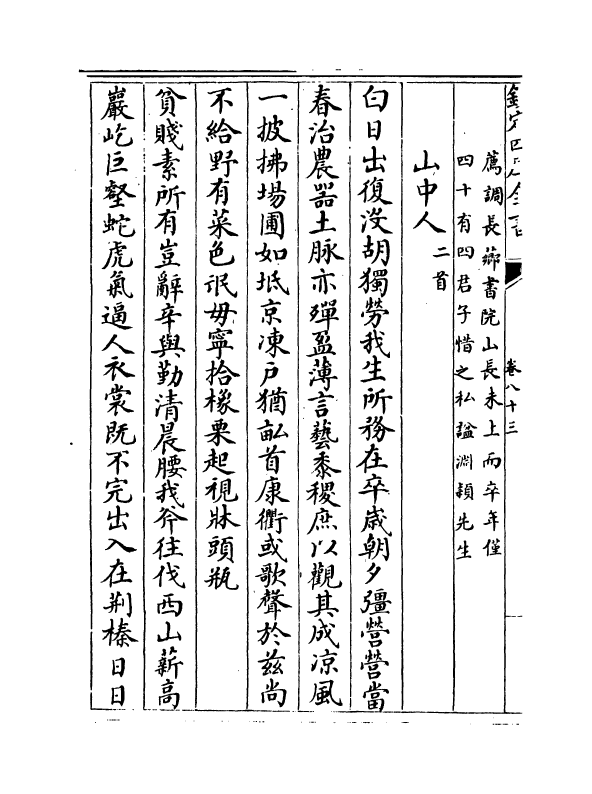 欽定四庫全書
卷八十三
薦調長薌書院山長未上而卒年僅
四十有四君子惜之私諡淵頴先生
山中人二首
白日出復没胡獨勞我生所務在卒歲朝夕彊營營當
春治農器土脉亦殫盈薄言藝黍稷庶以觀其成凉風
一披拂場圃如坻京凍户猶畝首康衢或歌聲於兹尚
不給野有菜色氓毋寧拾橡栗起視牀頭瓶
貧賤素所有豈辭辛與勤清晨腰我斧往伐西山薪高
巖屹巨壑蛇虎氣逼人衣裳既不完出入在荆榛日日